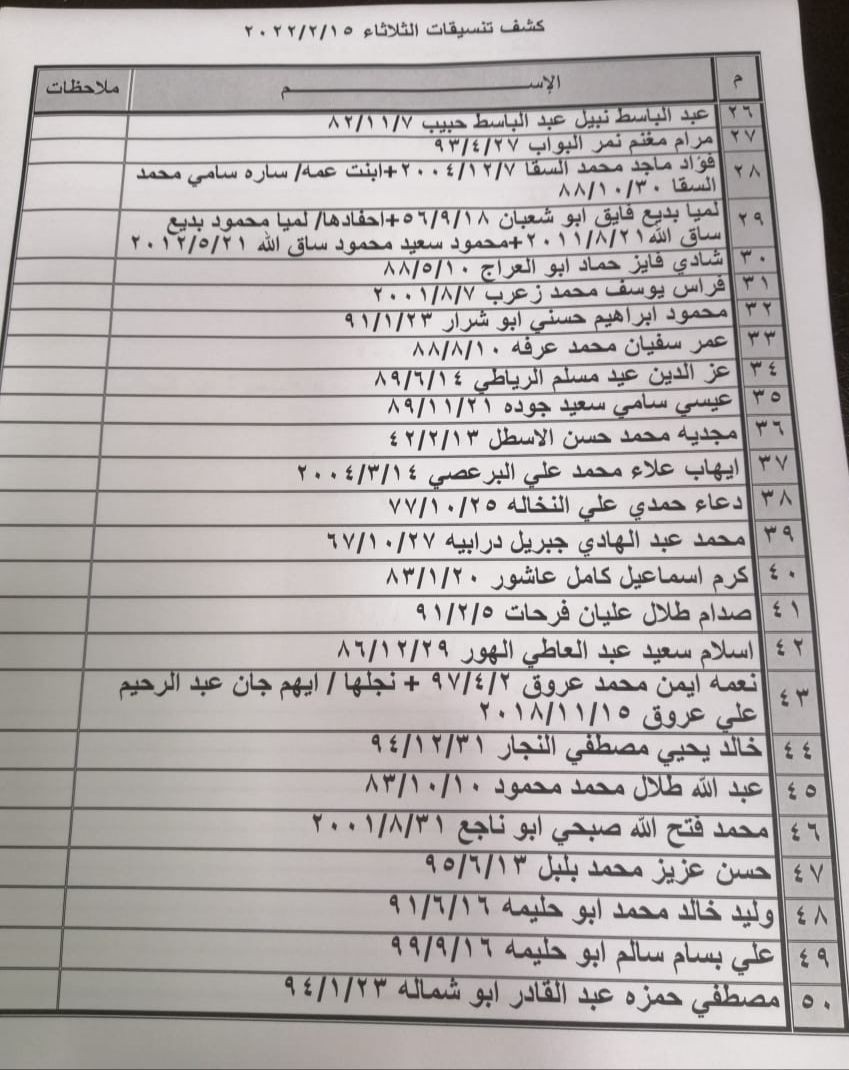 كشف تنسيقات الثلاثاء ٢٠٢٢/٢/١٥
م الإســـم ملاحظات
٢٦ عبد الباسط نبيل عبد الباسط حبيب ٨٢/١١/٧
٢٧ مرام مغنم نمر البواب ٩٣/٤/٢٧
٢٨ فؤاد ماجد محمد السقا ٢٠٠٤/١٢/٧+ابنت عمه/ ساره سامي محمد
السقا ٨٨/١٠/٣٠
٢٩ لميا بديع فايق ابو شعبان ٥٦/٩/١٨+احفادها/ لميا محمود بديع
ساق الله ٢٠١١/٨/٢١+محمود سعيد محمود ساق الله ٢٠١٢/٥/٢١
٣٠ شادي فايز حماد ابو العراج ٨٨/٥/١٠
٣١ فراس يوسف محمد زعرب ٢٠٠١/٨/٧
٣٢ محمود ابراهيم حسني ابو شرار ٩١/١/٢٣
٣٣ عمر سفيان محمد عرفه ٨٨/٨/١٠
٣٤ عز الدين عيد مسلم الرياطي ٨٩/٦/١٤
٣٥ عيسي سامي سعيد جوده ٨٩/١١/٢١
٣٦ مجديه محمد حسن الاسطل ٤٢/٢/١٣
٣٧ ايهاب علاء محمد علي البرعصي ٢٠٠٤/٣/١٤
٣٨ دعاء حمدي علي النخاله ٧٧/١٠/٢٥
٣٩ محمد عبد الهادي جبريل درابيه ٦٧/١٠/٢٧
٤٠ كرم اسماعيل كامل عاشور ٨٣/١/٢٠
٤١ صدام طلال عليان فرحات ٩١/٢/٥
٤٢ اسلام سعيد عبد العاطي الهور ٨٦/١٢/٢٩
٤٣ نعمه ايمن محمد عروق ٩٧/٤/٢ + نجلها / ايهم جان عبد الرحيم
علي عروق ٢٠١٨/١١/١٥
٤٤ خالد يحيي مصطفي النجار ٩٤/١٢/٣١
٤٥ عبد الله طلال محمد محمود ٨٣/١٠/١٠
٤٦ محمد فتح الله صبحي ابو ناجع ٢٠٠١/٨/٣١
٤٧ حسن عزيز محمد بلبل ٩٥/٦/١٣
٤٨ وليد خالد محمد ابو حليمه ٩١/٦/١٦
٤٩ علي بسام سالم ابو حليمه ٩٩/٩/١٦
٥٠ مصطفي حمزه عبد القادر ابو شماله ٩٤/١/٢٣